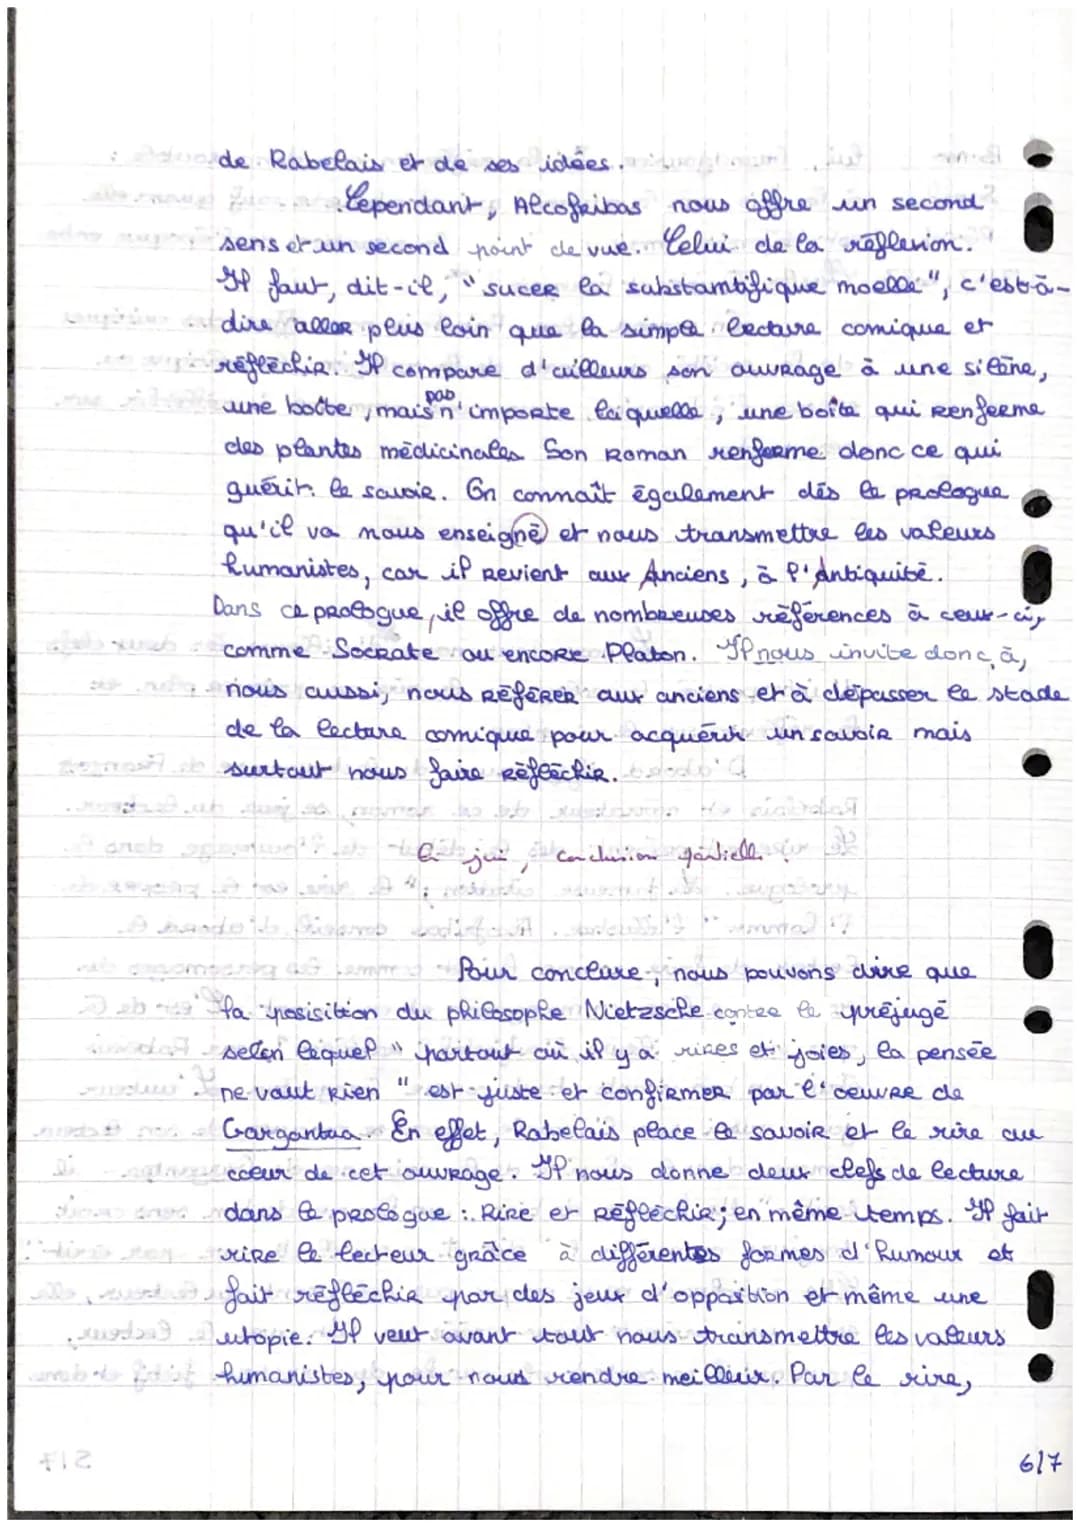 de Rabelais et de ses idées.
Cependant, Alcofribas nous offre un second
sens et un second point de vue. Celui de la réflexion.
Il faut, dit-il, "sucer la substantifique moelle", c'est-à-
dire aller plus loin que la simple lecture comique et
réfléchir. Il compare d'ailleurs son ouvrage à une silène,
pas
une boîte, mais n'importe laquelle, une boîte qui renferme
des plantes médicinales Son roman renferme donc ce qui
guérit: le savoir. On connaît également dés le prologue
qu'il va nous enseigné et nous transmettre les valeurs
humanistes, car il revient aux Anciens, à l'Antiquité.
Dans ce prologue, il offre de nombreuses références à ceux-ci,
comme Socrate ou encore Platon. Il nous invite donc, à,
nous aussi, nous référer aux anciens et à dépasser le stade
de la lecture comique pour acquérir un savoir mais
surtout nous faire réfléchir.
conclusion partielle.
Pour conclure, nous pouvons dire que
la posisition du philosophe Nietzsche contre le préjugé
selon lequel "partout où il y a rires et joies, la pensée
ne vaut rien" est juste et confirmer par l'oeuvre de
Gargantua. En effet, Rabelais place le savoir et le rire au
coeur de cet ouvrage. Il nous donne deux clefs de lecture
dans le prologue : Rire et Réfléchir; en même temps. Il fait
rire le lecteur grâce à différentes formes d'humour et
fait réfléchir par des jeux d'opposition et même une
utopie. Il veut avant tout nous transmettre les valeurs
humanistes, pour nous rendre meilleur. Par le rire,
6/7
5/7